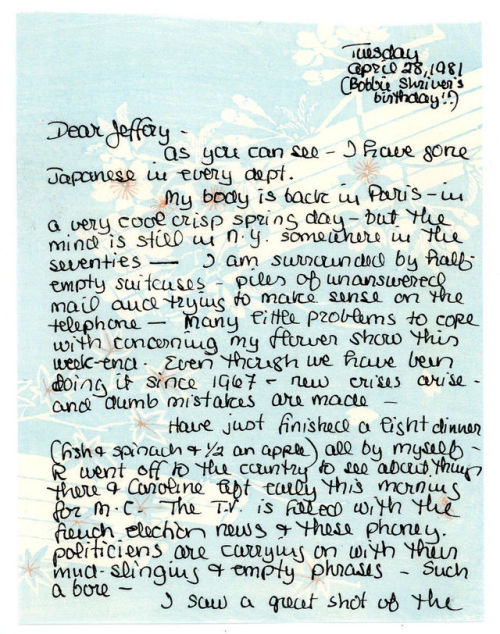 Tuesday
April 28, 1981
(Bobbie Shriver's
birthday!!)
Dear Jeffory -
as you can see - I have gone
Japanese in every dept.
My body is back in Paris - in
a very cool crisp spring day - but the
mind is still in N.Y. somewhere in the
seventies — I am surrounded by half-
empty suitcases - piles of unanswered
mail and trying to make sense on the
telephone — many little problems to cope
with concerning my flower show this
week-end. Even though we have been
doing it since 1967 - new crises arise -
and dumb mistakes are made —
Have just finished a light dinner
(fish & spinach & 1/2 an apple) all by myself -
R went off to the country to see about things
there & Caroline left early this morning
for M.C. The T.V. is filled with the
french election news & these phoney
politiciens are carrying on with their
mud-slinging & empty phrases - Such
a bore -
I saw a great shot of the